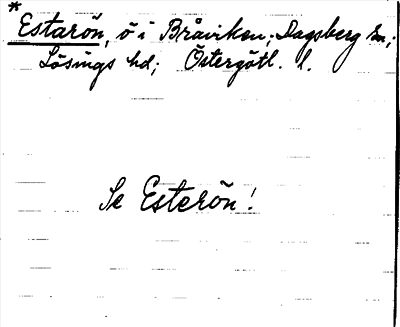 * Estarön, ö i Bråviken; Dagsberg sn;
Lösings hd; Östergötl. l.
Se Esterön!